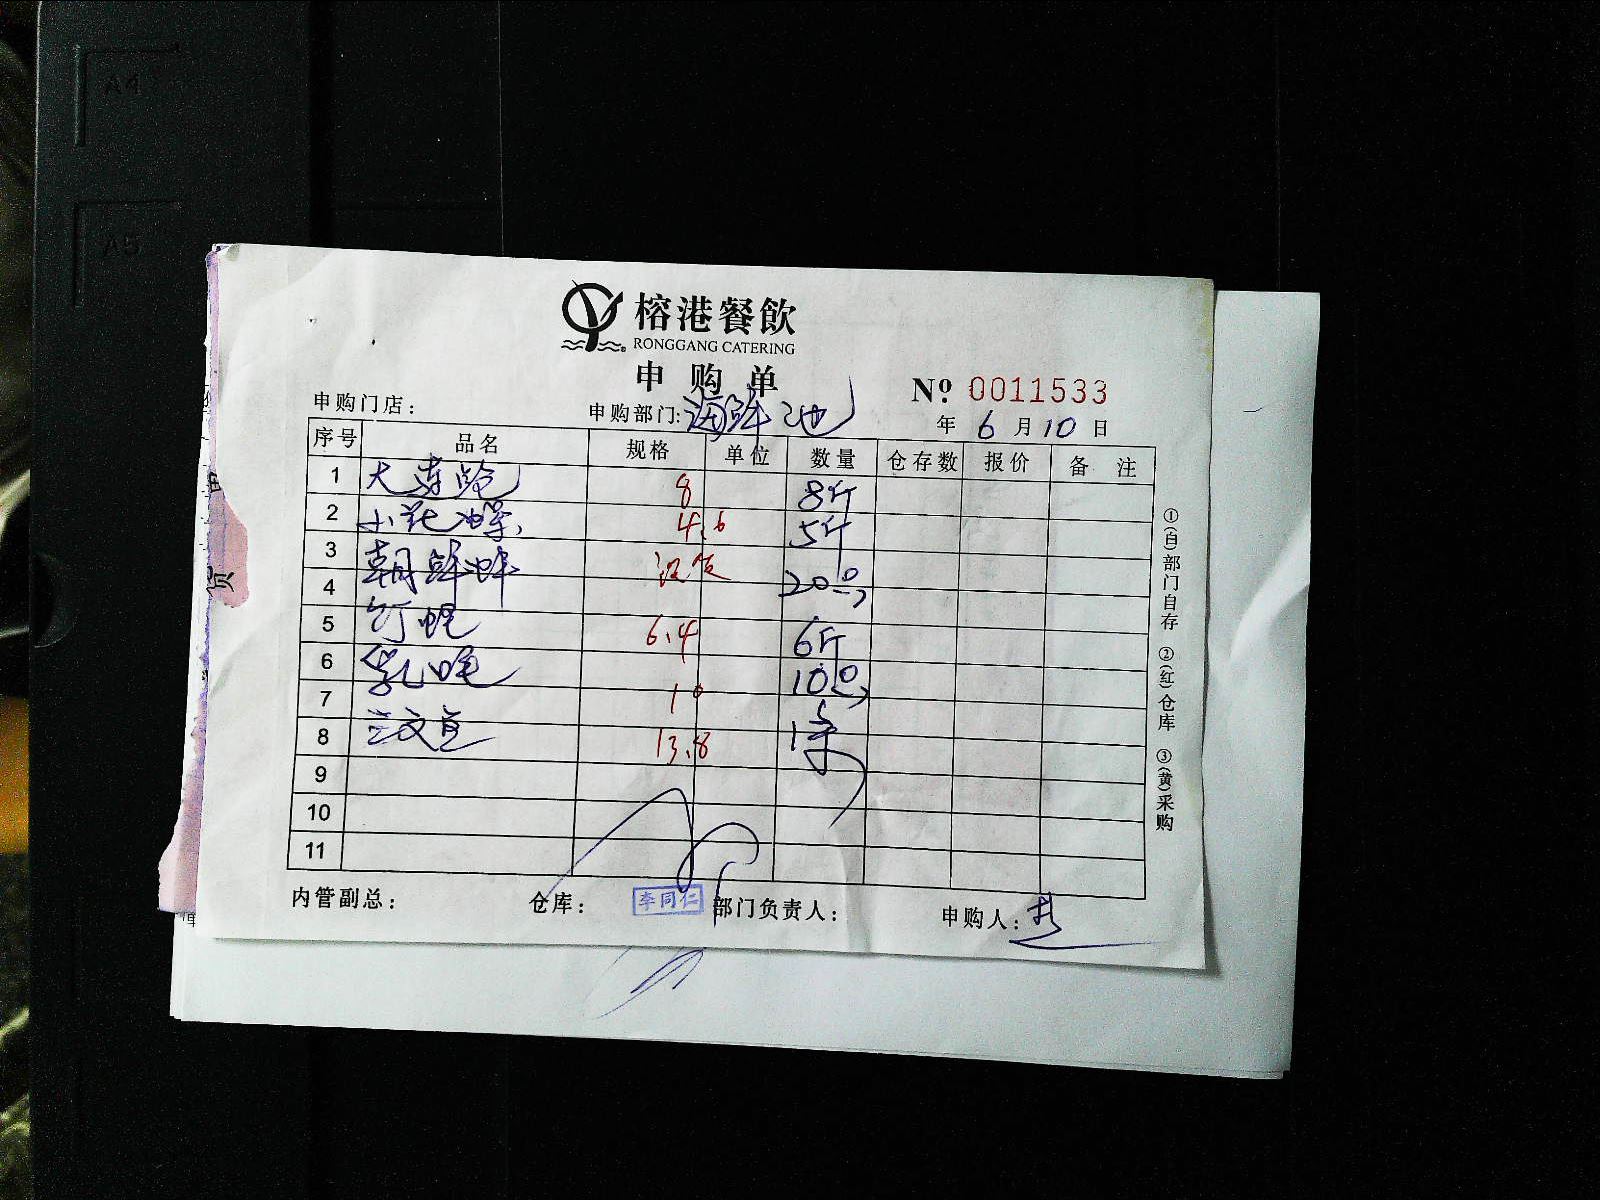 A4
A5
榕港餐飲
RONGGANG CATERING
申购单
№ 0011533
申购门店：
申购部门：海鲜池
年 6 月 10 日
序号 品名 规格 单位 数量 仓存数 报价 备注
1 大连鲍 8 8斤
2 小花螺 4.6 5斤
3 朝鲜蚌 没货
4 20只
5 6.4 6斤
6 10只
7 10
8 13.8 1条
9
10
11
内管副总：
仓库：
李同仁
部门负责人：
申购人：
①(白)部门自存 ②(红)仓库 ③(黄)采购